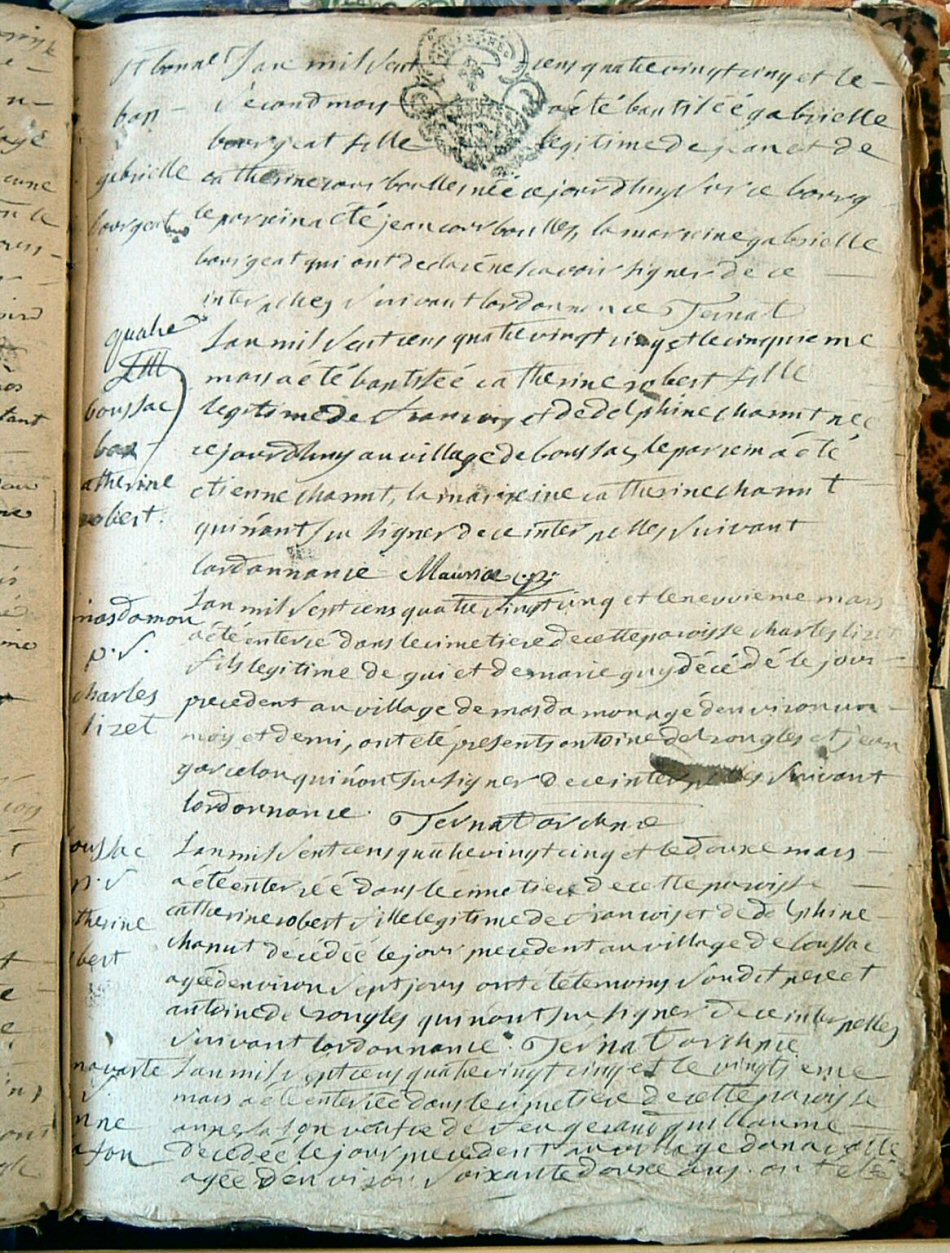 St bonnet
bap
gabrielle
bourgeat
Lan mil sept cens quatrevingt cinq et le
second mars a été baptiséé gabrielle
bourgeat fille legitime de jean et de
catherine néé ce jourdhuy sur ce bourg
le parrein a été jean la marreine gabrielle
bourgeat qui ont declaré ne scavoir signer de ce
interpelles suivant lordonnance Ternat
boussac
bap
atherine
robert.
Lan mil sept cens quatrevingt cinq et le cinquieme
mars a été baptiséé catherine robert fille
legitime de francois et de delphine chanut néé
ce jourdhuy au village de boussac, le parrein a été
etienne chanut, la marreine catherine chanut
qui nont su signer de ce interpelles suivant
lordonnance Maurice
masdamon
p. s.
charles
lizet
Lan mil sept cens quatrevingt cinq et le neuvieme mars
a été enterré dans le cimetiere de cette paroisse charles lizet
fils legitime de gui et de marie guy décédé le jour
precedent au village de masdamon agé denviron un
mois et demi, ont été presents antoine delrongles et jean
garcelon qui nont su signer de ce interpelles suivant
lordonnance. Ternat archpre
oussac
p. s
therine
bert
Lan mil sept cens quatrevingt cinq et le douze mars
a été enterréé dans le cimetiere de cette paroisse
catherine robert fille legitime de francois et de delphine
chanut décédéé le jour precedent au village de boussac
agéé denviron sept jours ont été temoins son dit pere et
antoine delrongles qui nont su signer de ce interpelles
suivant lordonnance. Ternat archpre
navaste
s.
nne
Lan mil sept cens quatrevingt cinq et le vingtieme
mars a été enterréé dans le cimetiere de cette paroisse
anne veufve de feu guillaume
décédéé le jour precedent au village de
agéé denviron soixante douze ans. ont été